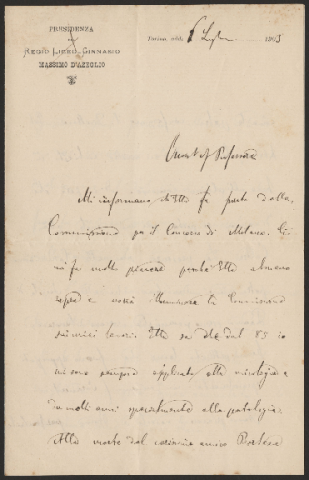 PRESIDENZA
DEL
REGIO LICEO GINNASIO
MASSIMO D'AZEGLIO
Torino, addì, 6 190
Professore
Mi informano ch'Ella fa parte della
Commissione pel Concorso di Milano. Ciò
mi fa molto piacere perché Ella almeno
saprà e vorrà illuminare la Commissione
sui miei lavori. Ella sa che dal 85 io
mi sono sempre applicato alla micologia e
da molti anni specialmente alla patologia.
Alla morte del amico